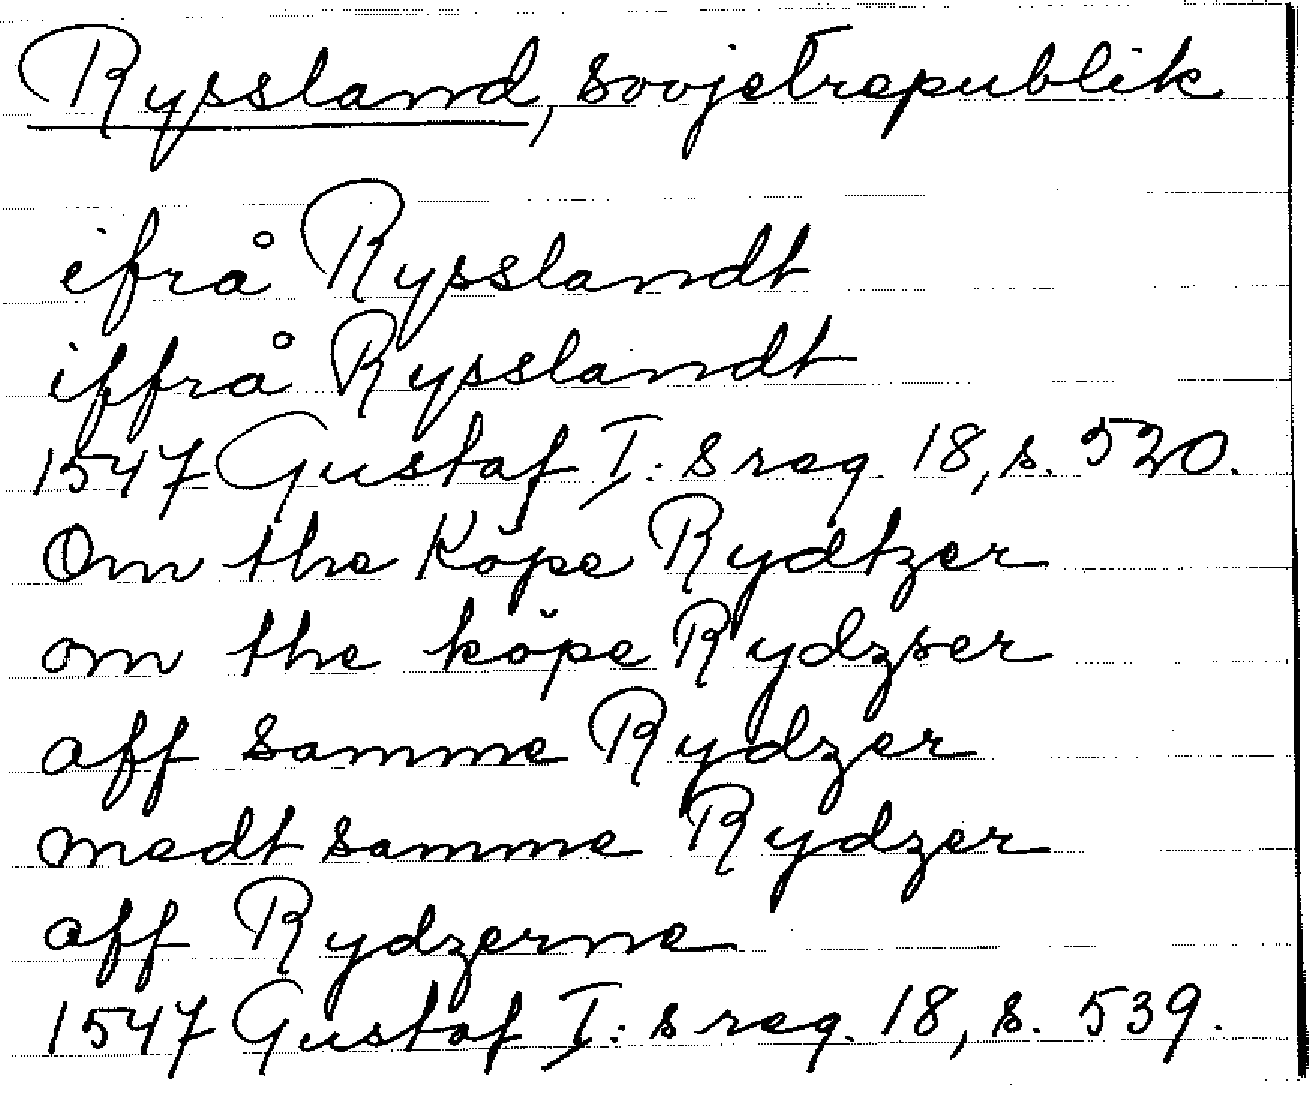 Ryssland, sovjetrepublik
ifrå Rysslandt
iffrå Rysslandt
1547 Gustaf I:s reg. 18, s. 520.
Om the Köpe Rydtzer
om the köpe Rydzser
aff samme Rydzer
medt samme Rydzer
aff Rydzerne
1547 Gustaf I:s reg. 18, s. 539.